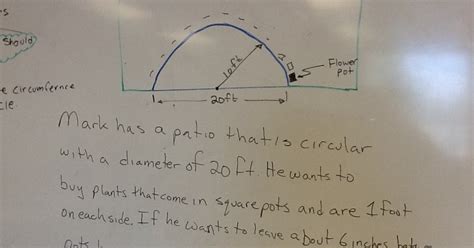 should
Flower
pot
10ft
20ft
e circumfernce
cle.
Mark has a patio that is circular
with a diameter of 20 ft. He wants to
buy plants that come in square pots and are 1 foot
on each side. If he wants to leave about 6 inches